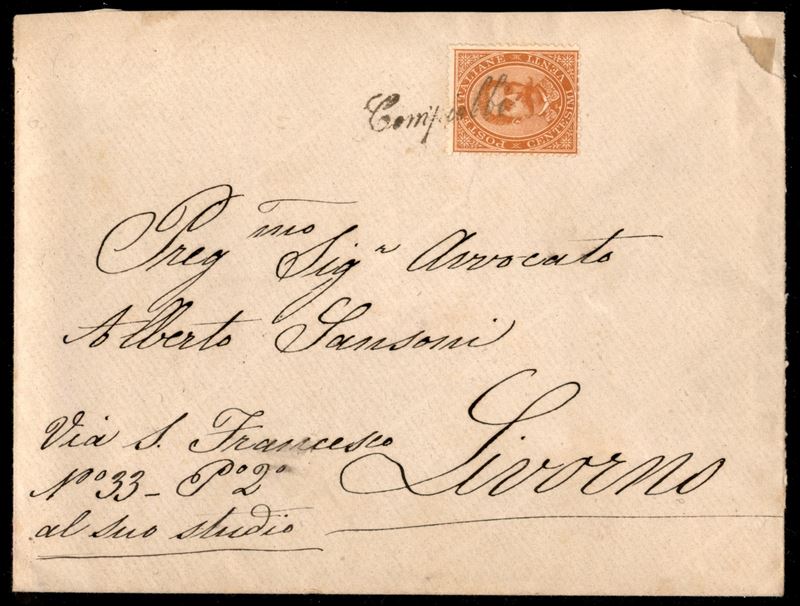 POSTE ITALIANE
CENTESIMI VENTI
Preg mo Sig r Avvocato
Alberto Sansoni
Via S. Francesco
Livorno
Nº 33 - Pº 2º
al suo studio